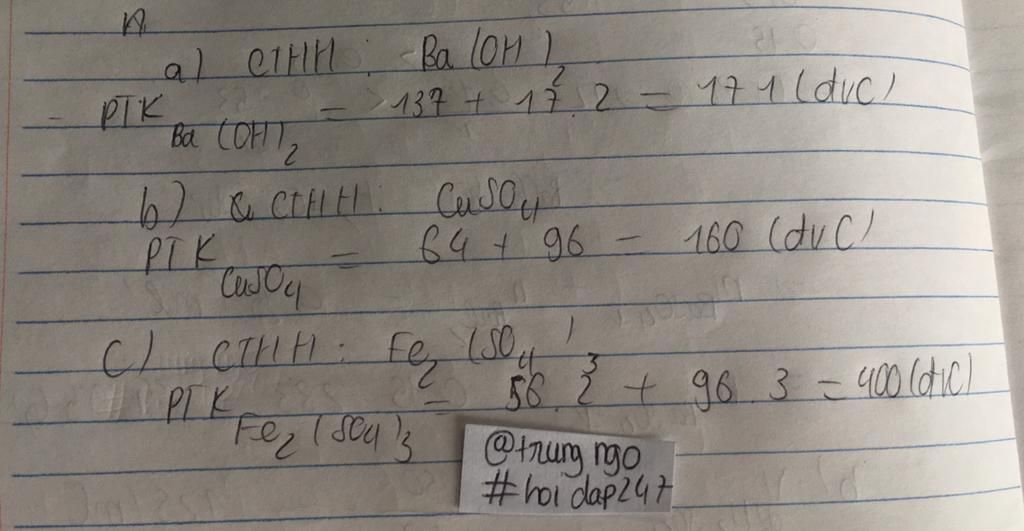 a) CTHH : Ba(OH)₂
- PTK Ba(OH)₂ = 137 + 17 . 2 = 171 (đvC)
b) CTHH : CuSO₄
PTK CuSO₄ = 64 + 96 = 160 (đvC)
c) CTHH : Fe₂(SO₄)₃
PTK Fe₂(SO₄)₃ = 56 . 2 + 96 . 3 = 400 (đvC)
@trung ngo
#hoi dap247